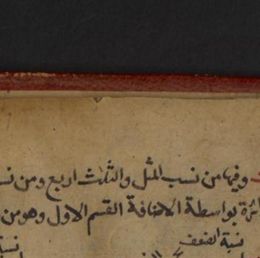 وفيها من نسب المثل والثلث اربع ومن نسب
ئرة بواسطة الاضافة القسم الاول وهو من
نسبة الضعف
نسبة